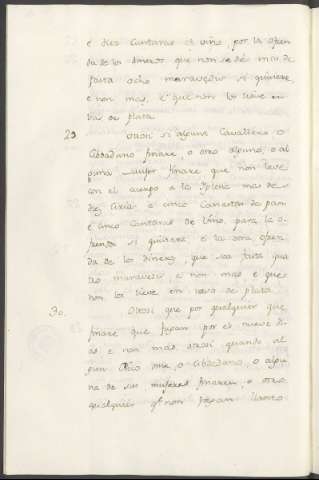 e diez Cantaras de vino, por la ofren
da de los dineros que non se dé mas de
fasta ocho maravedis si quisiere,
e non mas, e que non los lieve en
vas de plata.
29. Otrosi si algunt Cavallero o
Cibdadano finare, o otro alguno, o al
guna muger finare que non lieve
con el cuerpo a la Iglesia mas de
diez Cirios e cinco Canastas de pan
e cinco Cantaras de vino, para la o
frenda si quisiere, e la otra ofren
da de los dineros, que sea fasta
maravedis e non mas e que
non los lieve en vaso de plata.
30. Otrosi que por qualquier que
finare que fagan por el nueve di
as e non mas, otrosi quando al
gun Rico ome, o Cibdadano, o algu
na de sus mugeres finaren, o otro
qualquier qe non fagan llanto